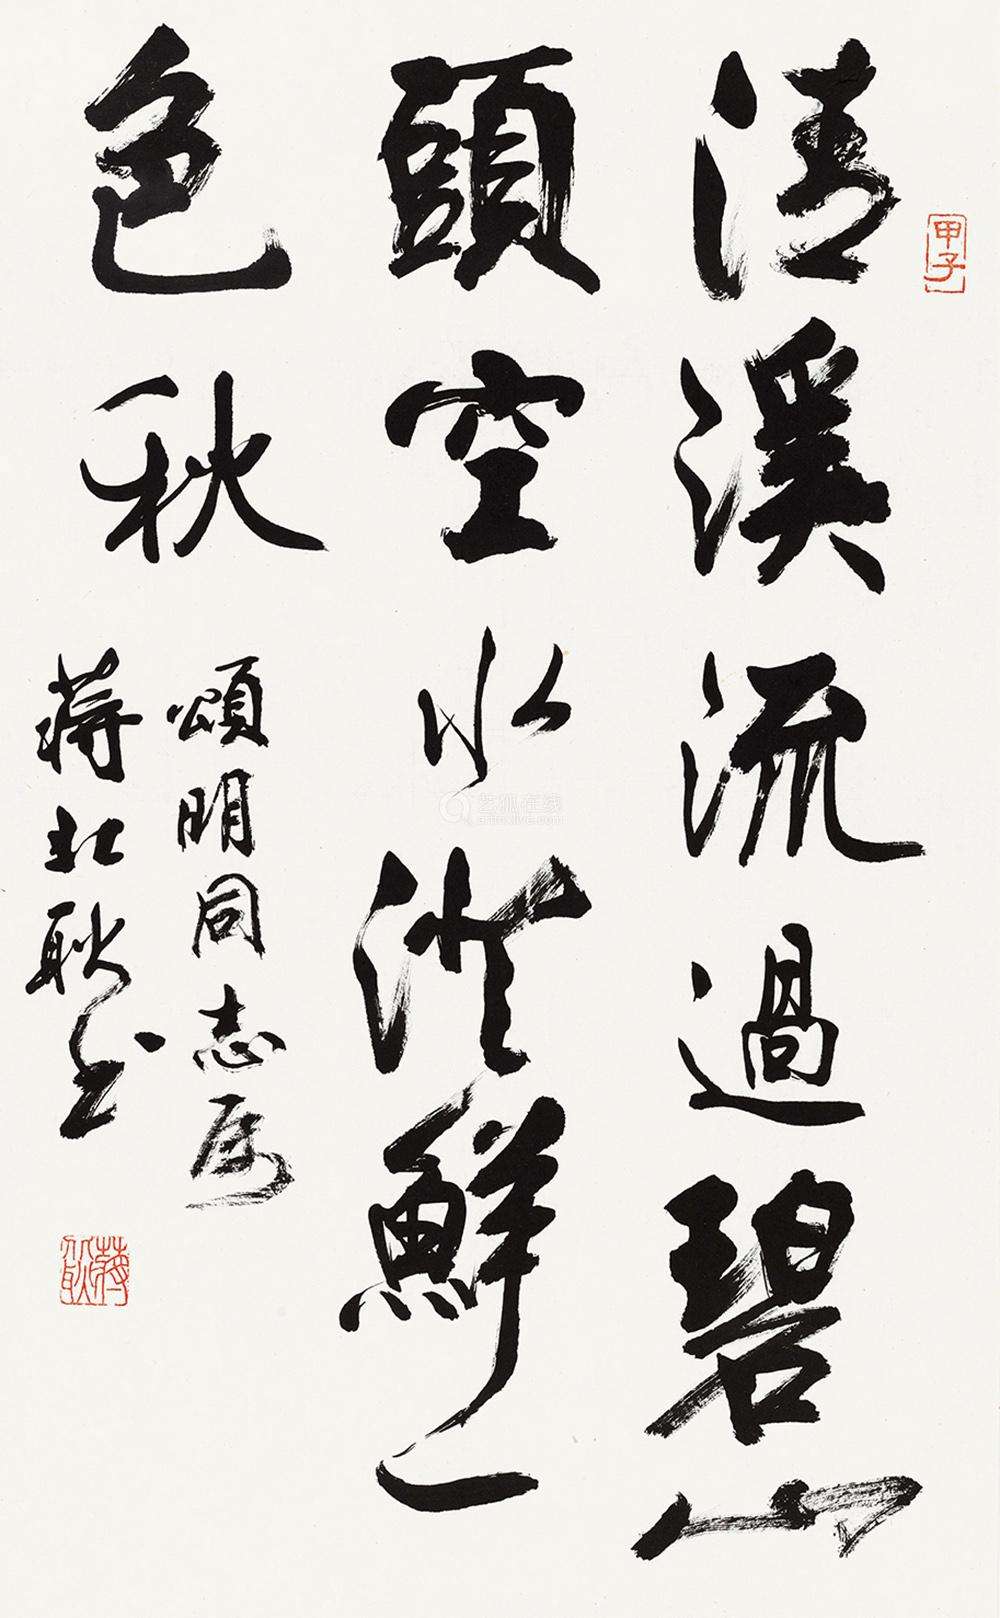 清溪流過碧山
頭空水澄鮮一
色秋
頌明同志属
蔣北耿書
甲子
蔣北耿
艺狐在线
artfoxlive.com